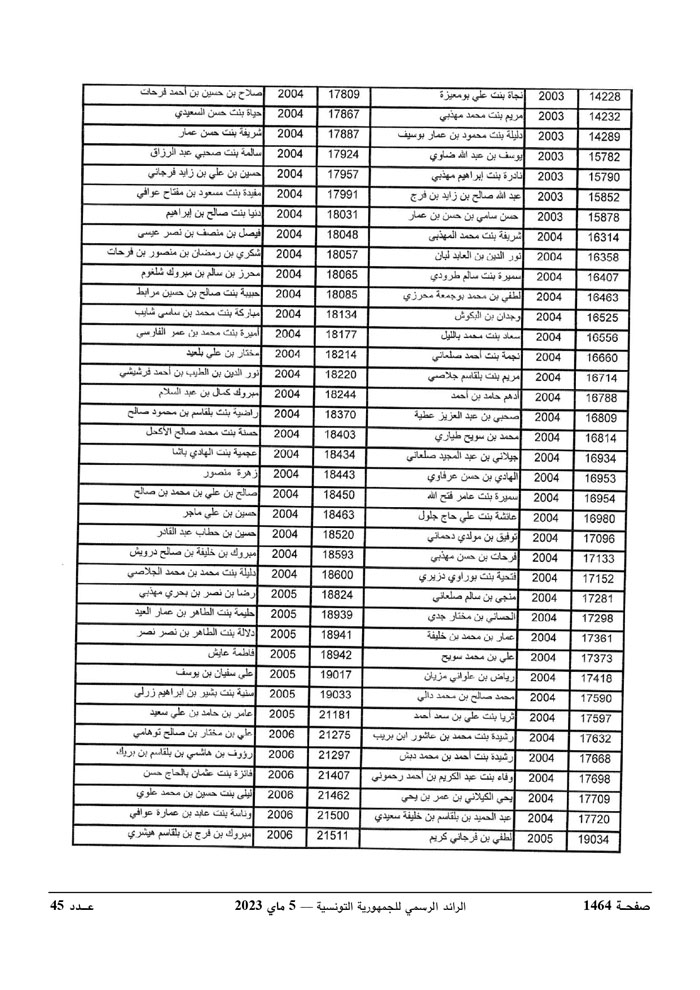 14228 2003 نجاة بنت علي بومعيزة 17809 2004 صلاح بن حسين بن أحمد فرحات
14232 2003 مريم بنت محمد مهذبي 17867 2004 حياة بنت حسن السعيدي
14289 2003 دليلة بنت محمود بن عمار بوسيف 17887 2004 شريفة بنت حسن عمار
15782 2003 يوسف بن عبد الله ضاوي 17924 2004 سالمة بنت صحبي عبد الرزاق
15790 2003 نادرة بنت إبراهيم مهذبي 17957 2004 حسين بن علي بن زايد فرجاني
15852 2003 عبد الله صالح بن زايد بن فرج 17991 2004 مفيدة بنت مسعود بن مفتاح عوافي
15878 2003 حسن سامي بن حسن بن عمار 18031 2004 دنيا بنت صالح بن إبراهيم
16314 2004 شريفة بنت محمد المهذبي 18048 2004 فيصل بن منصف بن نصر عيسى
16358 2004 نور الدين بن العابد لبان 18057 2004 شكري بن رمضان بن منصور بن فرحات
16407 2004 سميرة بنت سالم طرودي 18065 2004 محرز بن سالم بن مبروك شلغوم
16463 2004 لطفي بن محمد بوجمعة محرزي 18085 2004 حبيبة بنت صالح بن حسين مرابط
16525 2004 وجدان بن البكوش 18134 2004 مباركة بنت محمد بن ساسي شايب
16556 2004 سعاد بنت محمد بالليل 18177 2004 أميرة بنت محمد بن عمر الفارسي
16660 2004 نجمة بنت أحمد صلعاني 18214 2004 مختار بن علي بلعيد
16714 2004 مريم بنت بلقاسم جلاصي 18220 2004 نور الدين بن الطيب بن أحمد فرشيشي
16788 2004 أدهم حامد بن أحمد 18244 2004 مبروك كمال بن عبد السلام
16809 2004 صحبي بن عبد العزيز عطية 18370 2004 راضية بنت بلقاسم بن محمود صالح
16814 2004 محمد بن سويح طياري 18403 2004 حسنة بنت محمد صالح الأكحل
16934 2004 جيلاني بن عبد المجيد صلعاني 18434 2004 عجمية بنت الهادي باشا
16953 2004 الهادي بن حسن عرفاوي 18443 2004 زهرة منصور
16954 2004 سميرة بنت عامر فتح الله 18450 2004 صالح بن علي بن محمد بن صالح
16980 2004 عائشة بنت علي حاج جلول 18463 2004 حسين بن علي ماجر
17096 2004 توفيق بن مولدي دحماني 18520 2004 حسين بن حطاب عبد القادر
17133 2004 فرحات بن حسن مهذبي 18593 2004 مبروك بن خليفة بن صالح درويش
17152 2004 فتحية بنت بوراوي دزيري 18600 2004 دليلة بنت محمد بن محمد الجلاصي
17281 2004 منجي بن سالم صلعاني 18824 2005 رضا بن نصر بن بحري مهذبي
17298 2004 الحساني بن مختار جدي 18939 2005 حليمة بنت الطاهر بن عمار العيد
17361 2004 عمار بن محمد بن خليفة 18941 2005 دلالة بنت الطاهر بن نصر نصر
17373 2004 علي بن محمد سويح 18942 2005 فاطمة عايش
17418 2004 رياض بن علواني مزيان 19017 2005 علي سفيان بن يوسف
17590 2004 محمد صالح بن محمد دالي 19033 2005 سنية بنت بشير بن ابراهيم زرلي
17597 2004 ثريا بنت علي بن سعد أحمد 21181 2005 عامر بن حامد بن علي سعيد
17632 2004 رشيدة بنت محمد بن عاشور ابن بريب 21275 2006 علي بن مختار بن صالح توهامي
17668 2004 رشيدة بنت أحمد بن محمد دبش 21297 2006 رؤوف بن هاشمي بن بلقاسم بن بريك
17698 2004 وفاء بنت عبد الكريم بن أحمد رحموني 21407 2006 فائزة بنت عثمان بالحاج حسن
17709 2004 يحي الكيلاني بن عمر بن يحي 21462 2006 ليلى بنت حسين بن محمد علوي
17720 2004 عبد الحميد بن بلقاسم بن خليفة سعيدي 21500 2006 وناسة بنت عابد بن عمارة عوافي
19034 2005 لطفي بن فرجاني كريم 21511 2006 مبروك بن فرج بن بلقاسم هيشري
صفحـة 1464 الرائد الرسمي للجمهورية التونسية — 5 ماي 2023 عـــدد 45